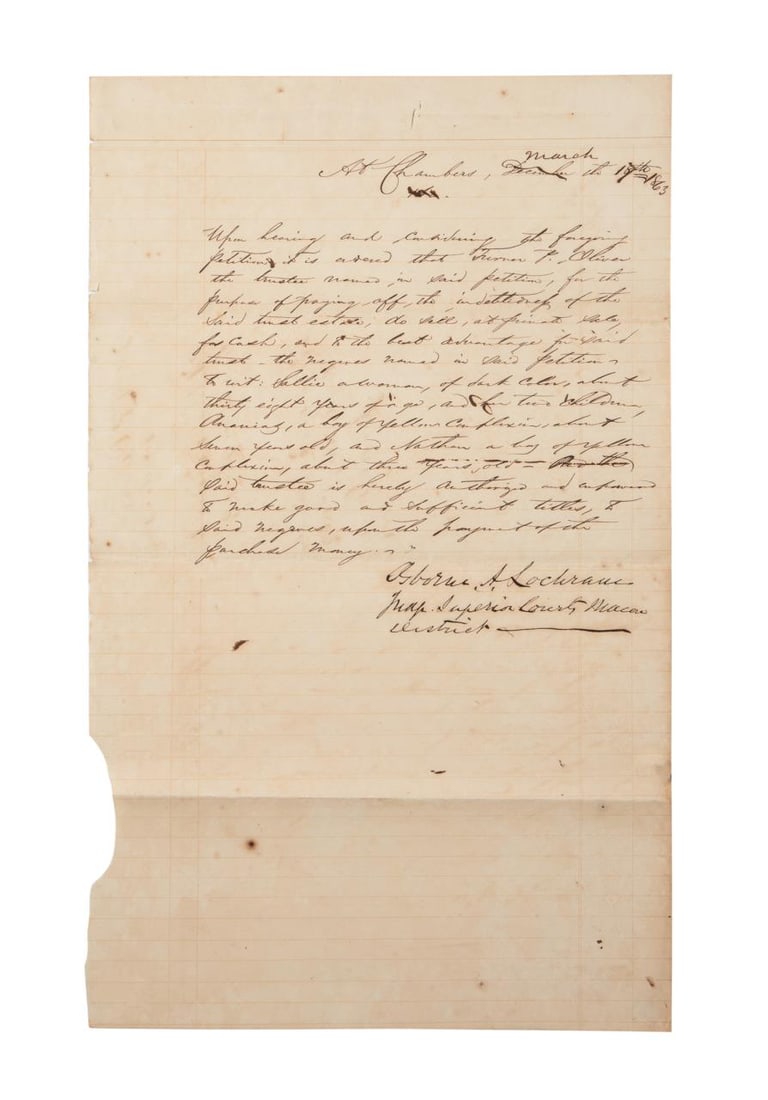 March
At Chambers, December the 17th 1863
Upon hearing and considering the foregoing
petition, it is ordered that Turner P. Oliver
the trustee named, in said petition, for the
purpose of paying off, the, indebtedness of the
said trust estate, do sell, at private sale,
for cash, and to the best advantage for said
trust - the negroes named in said petition
To wit: Sallie a woman, of dark color, about
thirty eight years of age, and her two children,
Ananias, a boy of yellow complexion, about
seven years old, and Nathan a boy of yellow
complexion, about three years, old -
said trustee is hereby authorized and empowered
to make good and sufficient titles, to
said negroes, upon the payment of the
purchase money.
Osborne A. Lochrane
Judge Superior Courts Macon
District